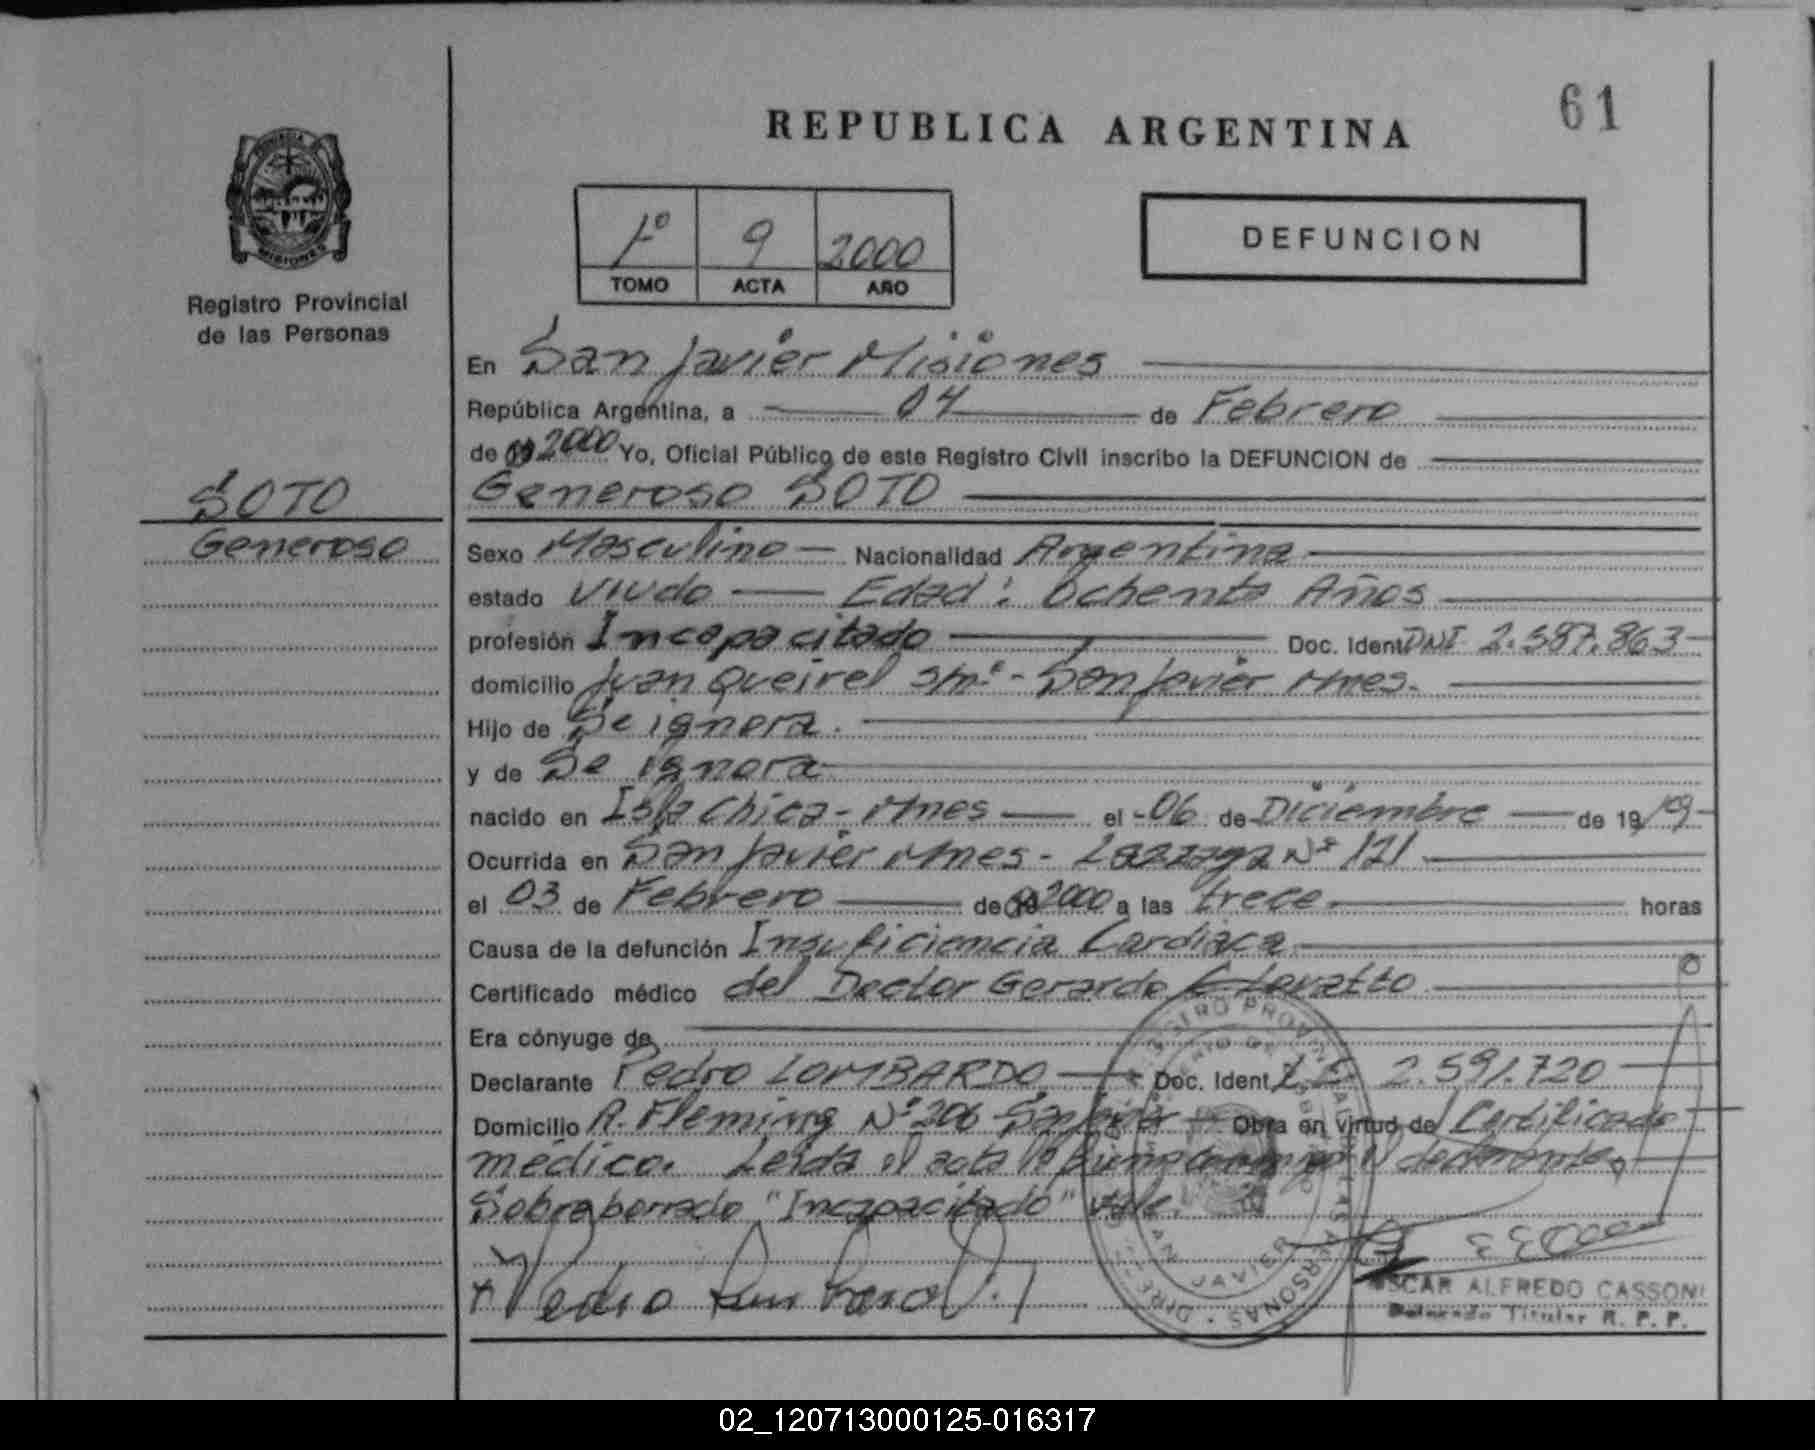 61
REPUBLICA ARGENTINA
PROVINCIA
MISIONES
Registro Provincial
de las Personas
1º 9 2000
TOMO ACTA AÑO
DEFUNCION
En San Javier Misiones
República Argentina, a 04 de Febrero
de 2000 Yo, Oficial Público de este Registro Civil inscribo la DEFUNCION de
SOTO
Generoso SOTO
Generoso
Sexo Masculino Nacionalidad Argentina
estado viudo Edad: Ochenta Años
profesión Incapacitado Doc. Ident DNI 2.587.863
domicilio Juan Queirel s/nº - San Javier Mnes.
Hijo de Se ignora.
y de Se ignora
nacido en Isla Chica - Mnes el 06 de Diciembre de 1919
Ocurrida en San Javier Mnes - Nº 121
el 03 de Febrero de 2000 a las trece horas
Causa de la defunción Insuficiencia Cardiaca
Certificado médico del Doctor Gerardo
Era cónyuge de
Declarante Pedro LOMBARDO Doc. Ident L.E 2.591.720
Domicilio A. Fleming Nº 206 San Javier Obra en virtud de Certificado
médico. Leida el acta la firma conmigo el declarante
Sobreborrado "Incapacitado" vale.
Pedro Lombardo
OSCAR ALFREDO CASSONI
Delegado Titular R. P. P.
REGISTRO PROVINCIAL DE LAS PERSONAS
SAN JAVIER
02_120713000125-016317